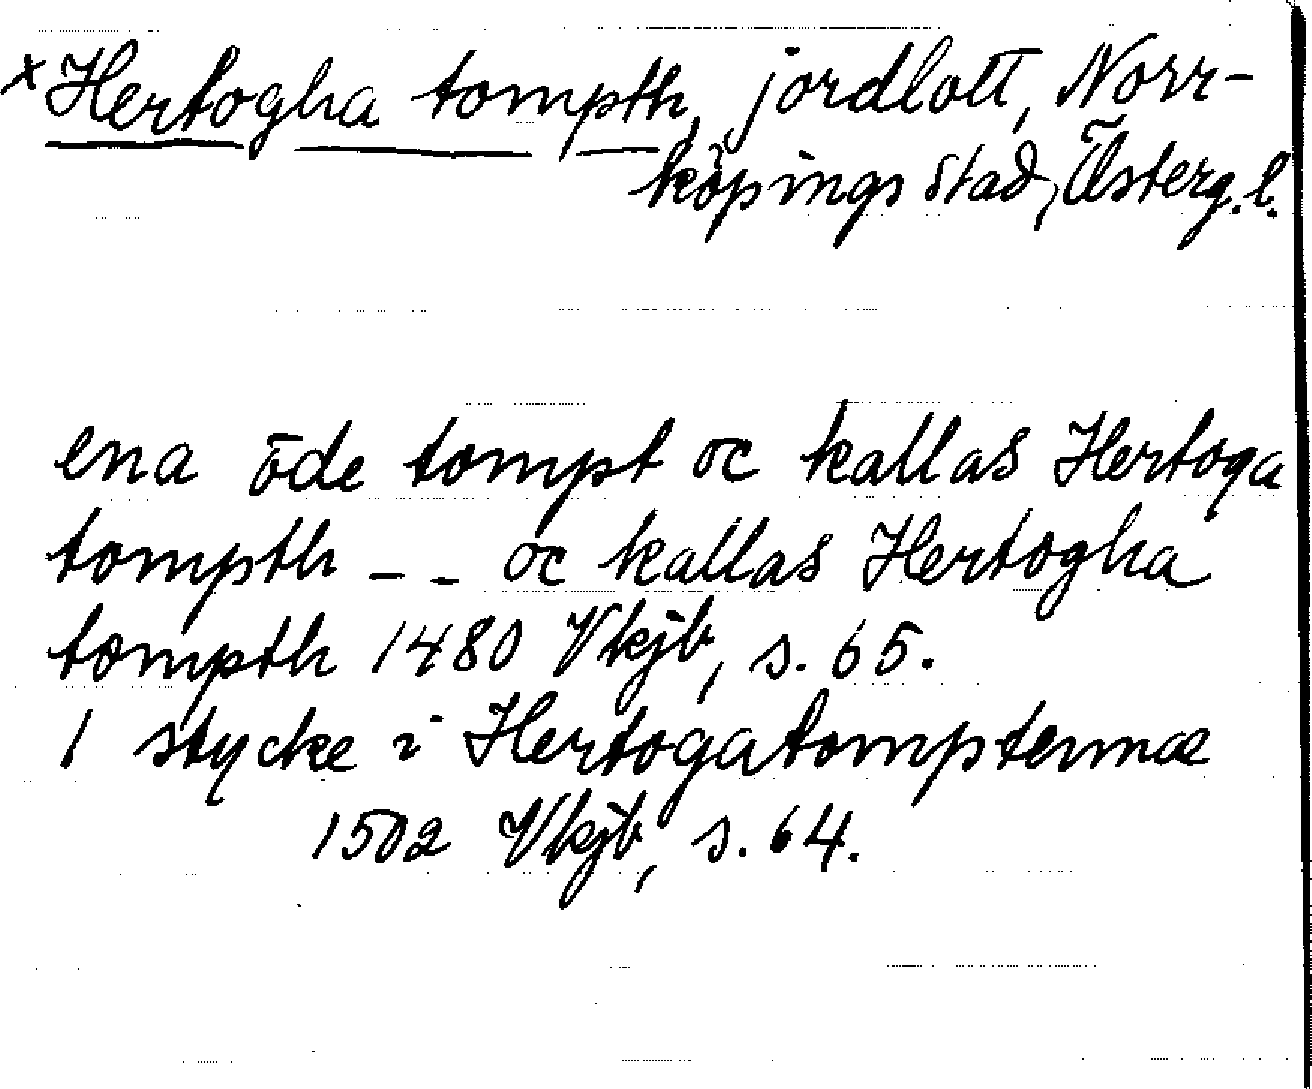 x Hertogha tompth, jordlott, Norr-
köpings stad, Österg. l.
ena öde tompt oc kallas Hertoga
tompth - - oc kallas Hertogha
tompth 1480 Vkjb, s. 65.
1 stycke i Hertogatompternæ
1502 Vkjb, s. 64.